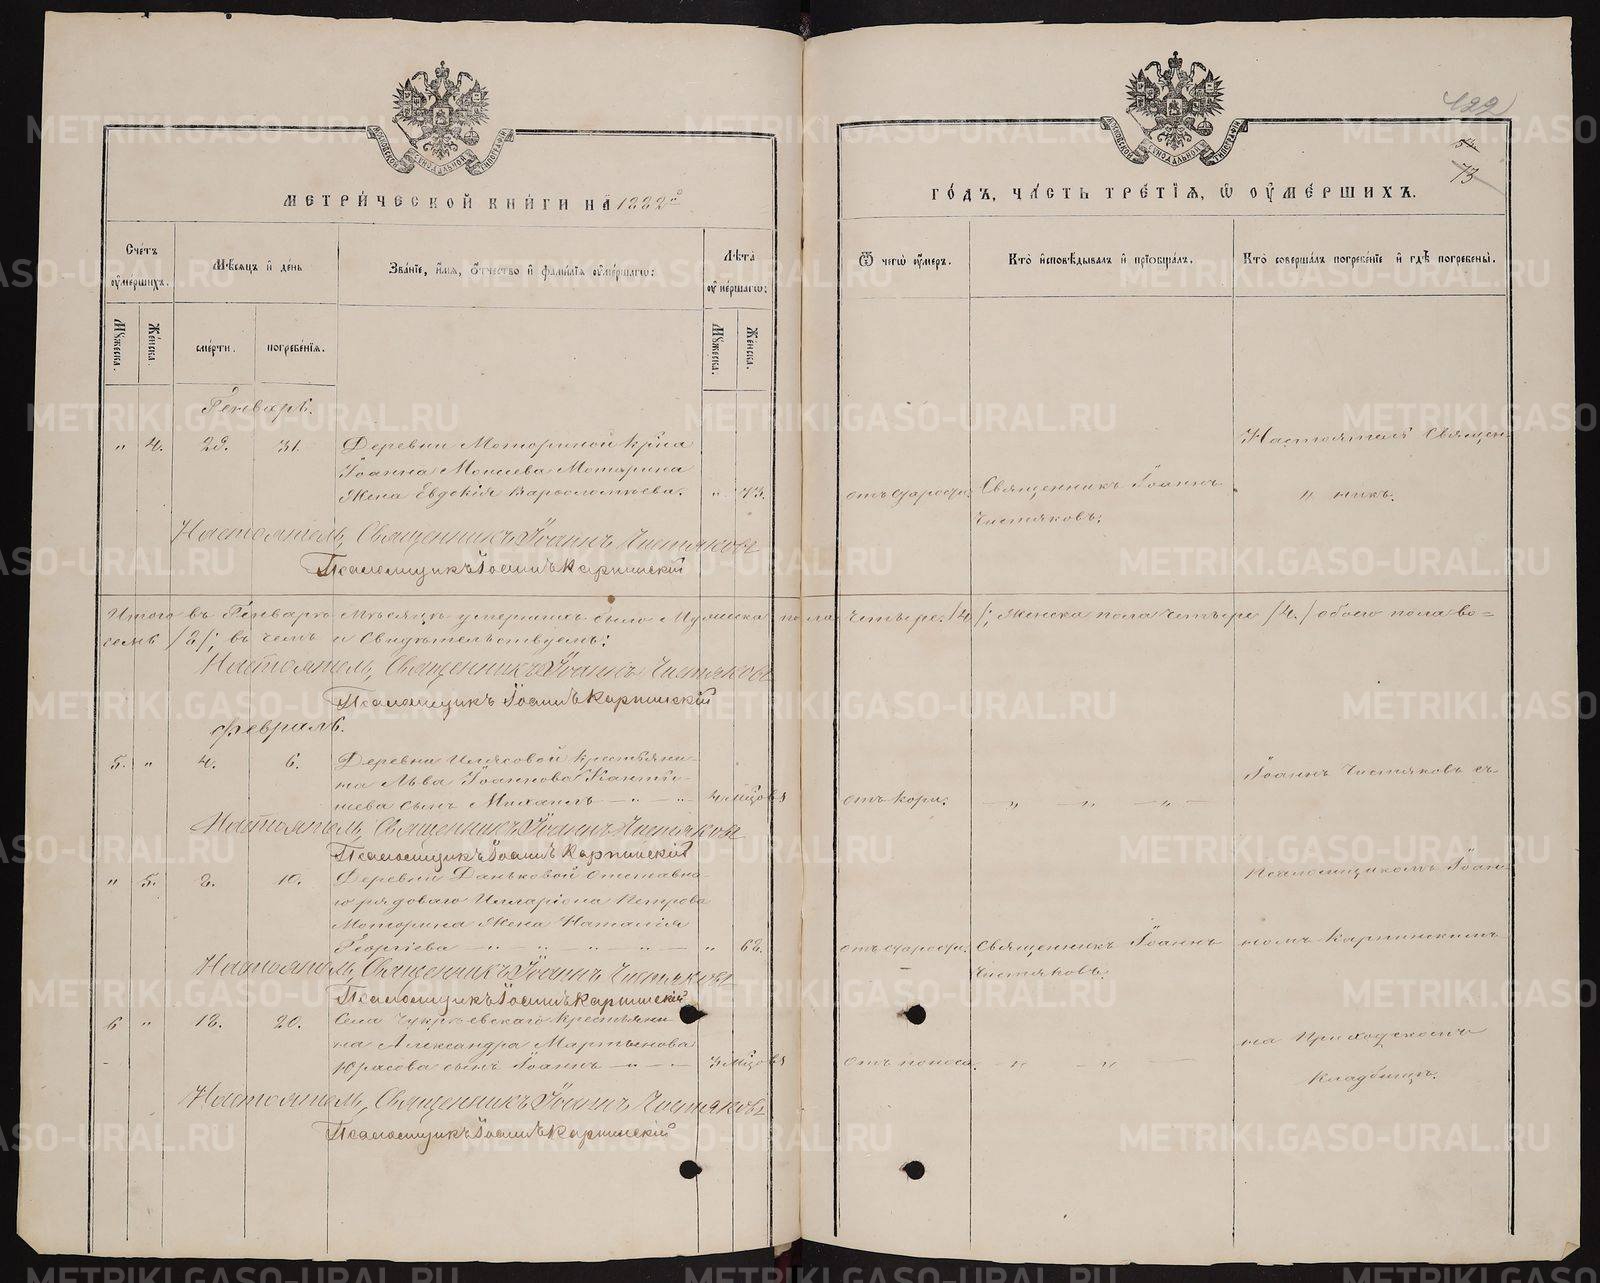 122
54
73
МОСКОВСКОЙ СѴНОДАЛЬНОЙ ТИПОГРАФІИ
МОСКОВСКОЙ СѴНОДАЛЬНОЙ ТИПОГРАФІИ
МЕТРИ́ЧЕСКОЙ КНИ́ГИ НА̀ 1882й
ГО́ДЪ, ЧА́СТЬ ТРЕ́ТІѦ, Ѡ ОУ҆МЕ́РШИХЪ.
Сче́тъ оу҆ме́ршихъ.
Мѣ́сѧцъ и҆ де́нь
Зва́нїе, и҆́мѧ, ѻ҆́тчество и҆ фами́лїѧ оу҆ме́ршагѡ:
Лѣ́та оу҆ме́ршагѡ:
Ѿ чегѡ̀ оу҆́меръ.
Кто̀ и҆сповѣ́дывалъ и҆ прїѻбща́лъ.
Кто̀ соверша́лъ погребе́нїе и҆ гдѣ̀ погребены̀.
Мꙋ́жеска. Же́нска.
сме́рти. погребе́нїѧ.
Мꙋ́жеска. Же́нска.
Генварь.
" 4. 29. 31. Деревни Моториной кр̃на
Іоанна Моисеева Моторина
Жена Евдокія Варѳоломѣева. " 73. отъ старости. Священникъ Іоаннъ
Чистяковъ.
Настоятель Священ-
никъ.
Настоятель, Священникъ Іоаннъ Чистяковъ
Псаломщикъ Іоаннъ Карпинскій
Итого въ Генварѣ Мѣсяцѣ умершихъ было Мужеска пола четыре /4/; Женска пола четыре /4./ обоего пола во=
семь /8/; въ чемъ и Свидѣтельствуемъ:
Настоятель, Священникъ Іоаннъ Чистяковъ
Псаломщикъ Іоаннъ Карпинскій
Февраль.
5. " 4. 6. Деревни Илясовой крестьяни-
на Льва Іоаннова
сынъ Михаилъ — " — " — 4 мѣ̃цовъ отъ кори. — " — " — " —
Іоаннъ Чистяковъ съ
Настоятель, Священникъ Іоаннъ Чистяковъ
Псаломщикъ Іоаннъ Карпинскій
" 5. 8. 10. Деревни Даньковой отставна-
го рядоваго Илларіона Петрова
Моторина Жена Наталія
Георгіева — " — " — " — " — " 68. отъ старости. Священникъ Іоаннъ
Чистяковъ.
Псаломщикомъ Іоан-
номъ Карпинскимъ
Настоятель, Священникъ Іоаннъ Чистяковъ
Псаломщикъ Іоаннъ Карпинскій
6 " 18. 20. Села Чукрѣевскаго крестьяни
на Александра Мартынова
Юрасова сынъ Іоаннъ — " — " — 3 мѣ̃цовъ отъ поноса. — " — " —
на Приходскомъ
кладбищѣ.
Настоятель, Священникъ Іоаннъ Чистяковъ
Псаломщикъ Іоаннъ Карпинскій
METRIKI.GASO-URAL.RU